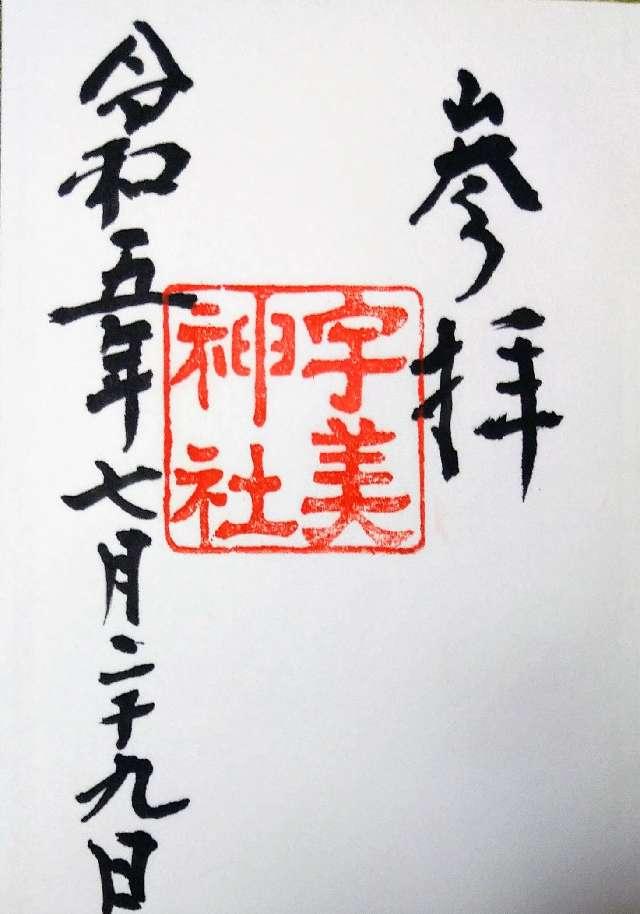 参拝
宇美
神社
令和五年七月二十九日